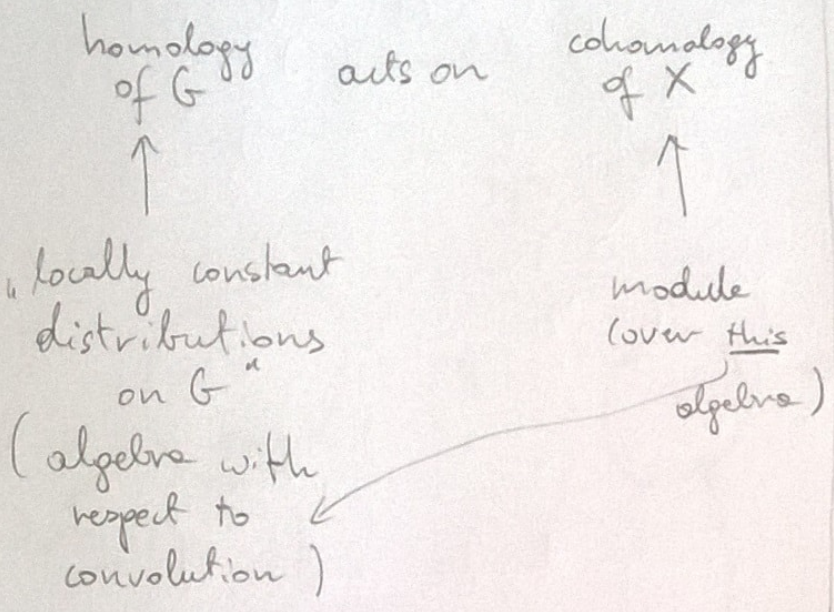 homology acts on cohomology
of G of X
„locally constant
distributions
on G"
(algebra with
respect to
convolution)
module
(over this
algebra)